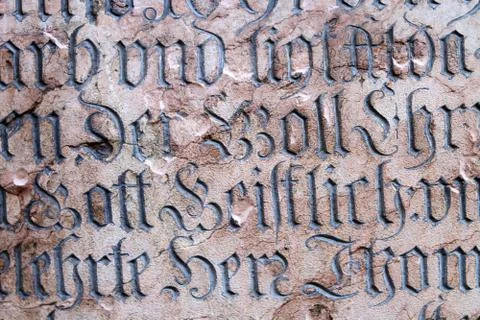 arb vnd ligt Alda.
en. der Woll Ehr
n Gott Geistlich. vn
elehrte Herr Thom